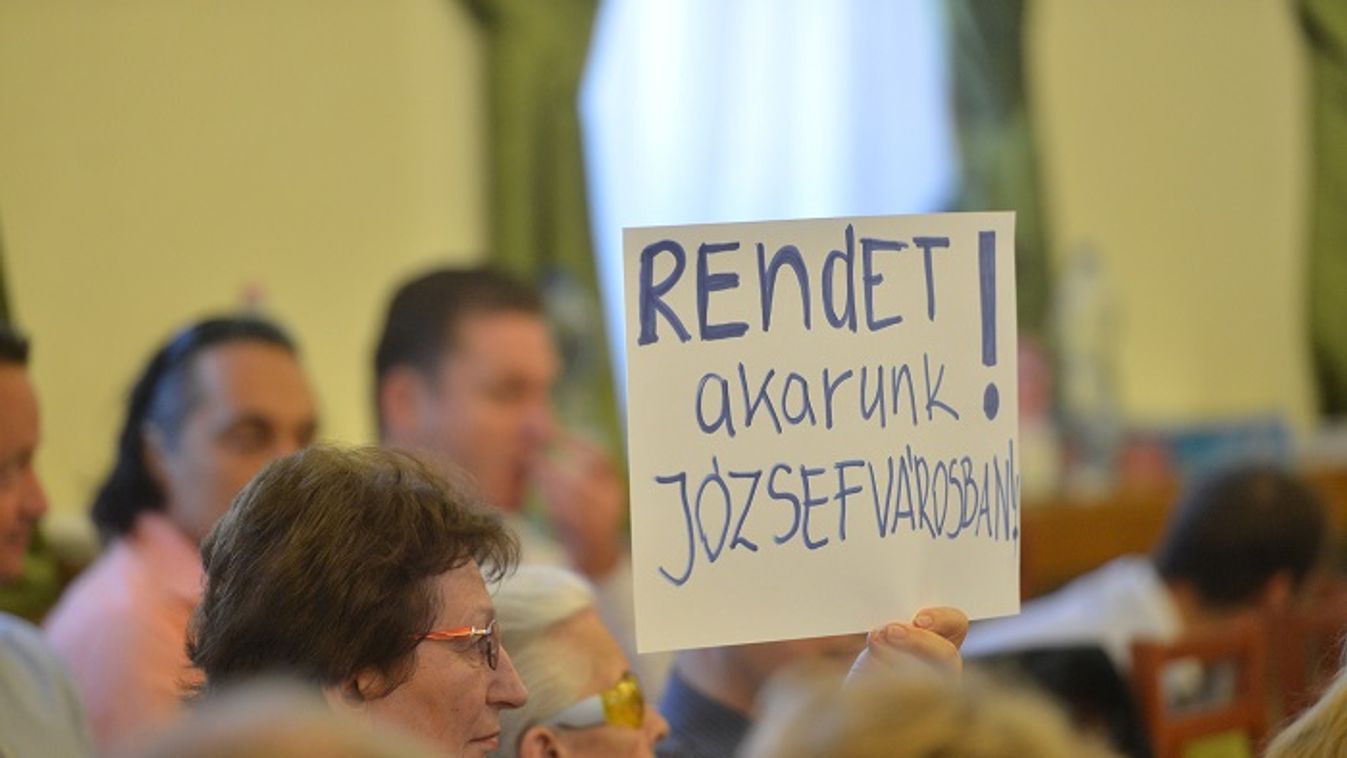 RENDET!
akarunk
JÓZSEFVÁROSBAN!